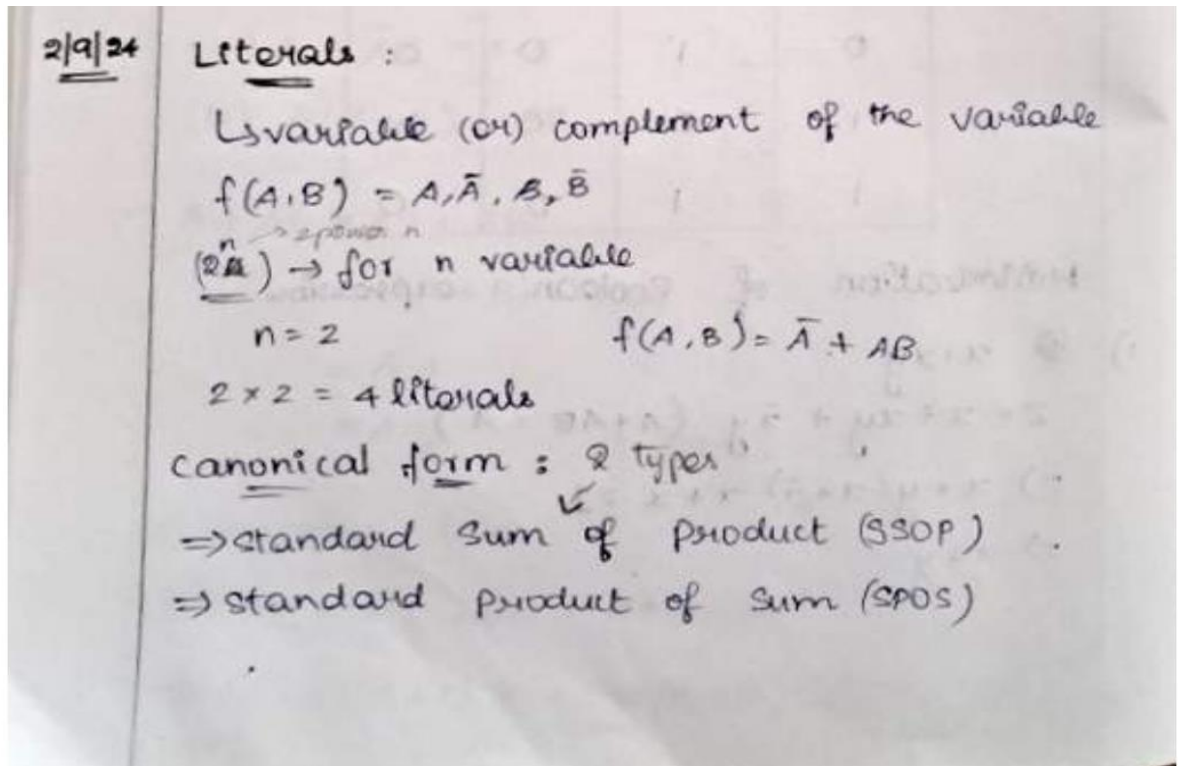 2/9/24 Literals :
↳ variable (or) complement of the variable
f(A,B) = A, Ā, B, B̄
n → 2 power n
(2n) → for n variable
n = 2 f(A,B) = Ā + AB
2 × 2 = 4 literals
canonical form : 2 types
⇒ standard sum of product (SSOP)
⇒ standard product of sum (SPOS)